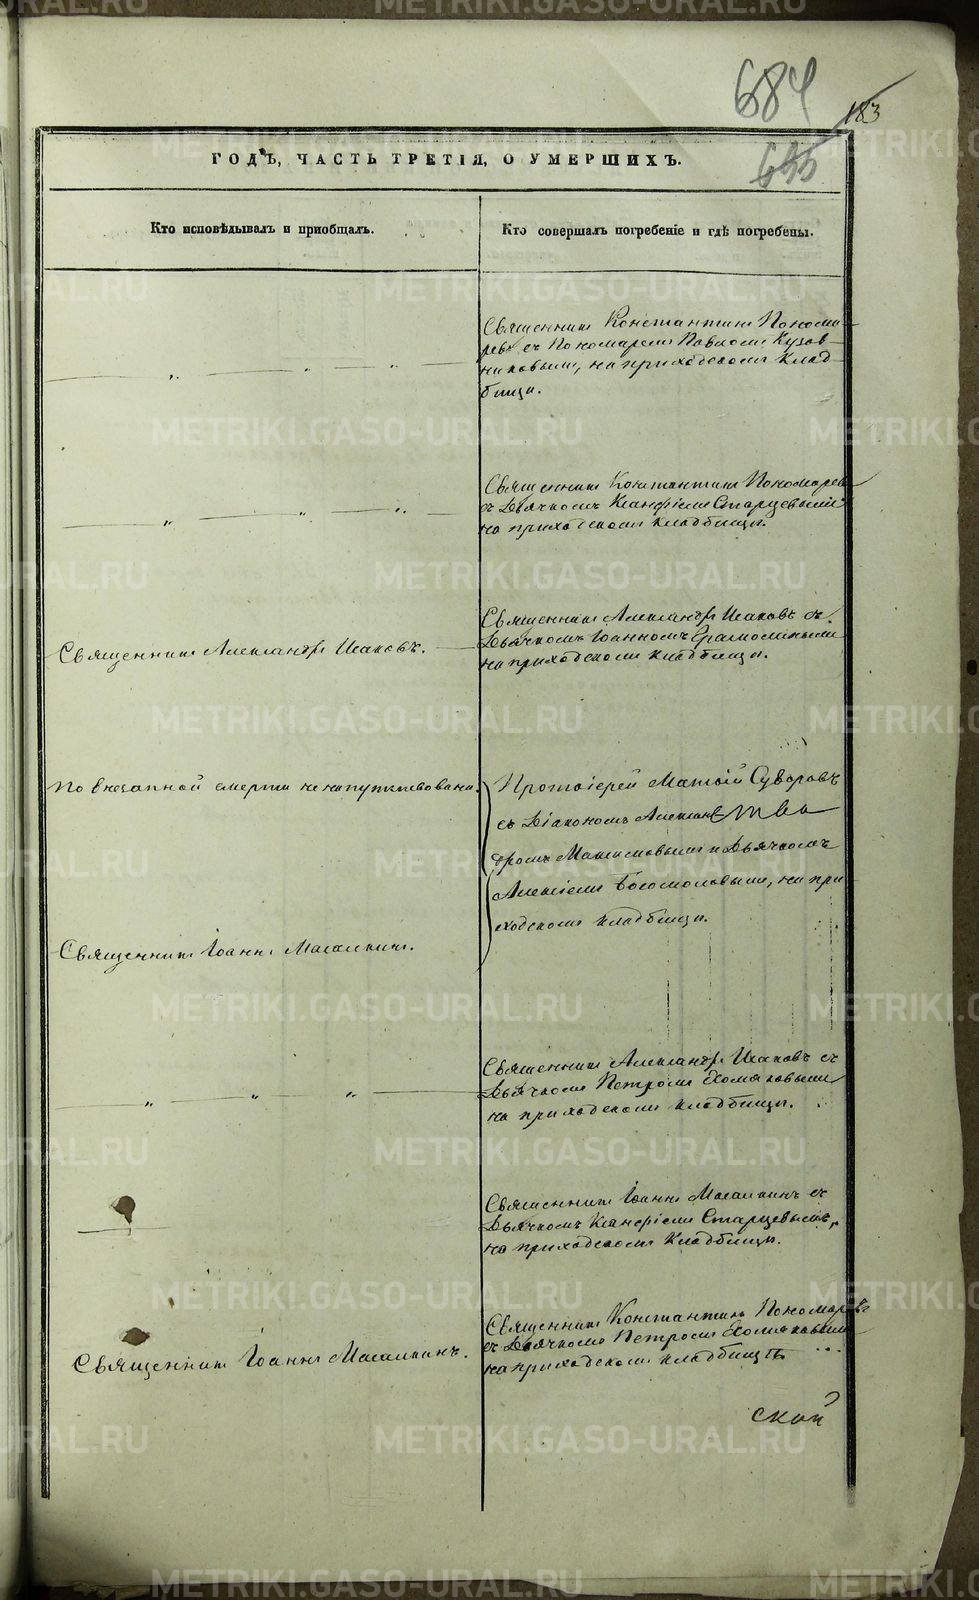 684
183
655
ГОДЪ, ЧАСТЬ ТРЕТІЯ, О УМЕРШИХЪ.
Кто исповѣдывалъ и приобщалъ.
Кто совершалъ погребеніе и гдѣ погребены.
Священникъ Константинъ Пономаревъ
съ Пономаремъ Павломъ
на приходскомъ кладбищѣ.
Священникъ Константинъ Пономаревъ
съ Дьячкомъ Ксанфіемъ Старцевымъ
на приходскомъ кладбищѣ.
Священникъ Александръ Исаковъ.
Священникъ Александръ Исаковъ съ
Дьячкомъ Іоанномъ
на приходскомъ кладбищѣ.
По внезапной смерти не напутствована.
Протоіерей Матѳій Суворовъ
съ Діакономъ Алексан-
дромъ Максимовымъ и Дьячкомъ
Алексіемъ Богомоловымъ, на при-
ходскомъ кладбищѣ.
Священникъ Іоаннъ Масалкинъ.
Священникъ Александръ Исаковъ съ
Дьячкомъ Петромъ Хомяковымъ
на приходскомъ кладбищѣ.
Священникъ Іоаннъ Масалкинъ съ
Дьячкомъ Ксанфіемъ Старцевымъ,
на приходскомъ кладбищѣ.
Священникъ Іоаннъ Масалкинъ.
Священникъ Константинъ Пономаревъ
съ Дьячкомъ Петромъ Хомяковымъ
на приходскомъ кладбищѣ.
ской
METRIKI.GASO-URAL.RU